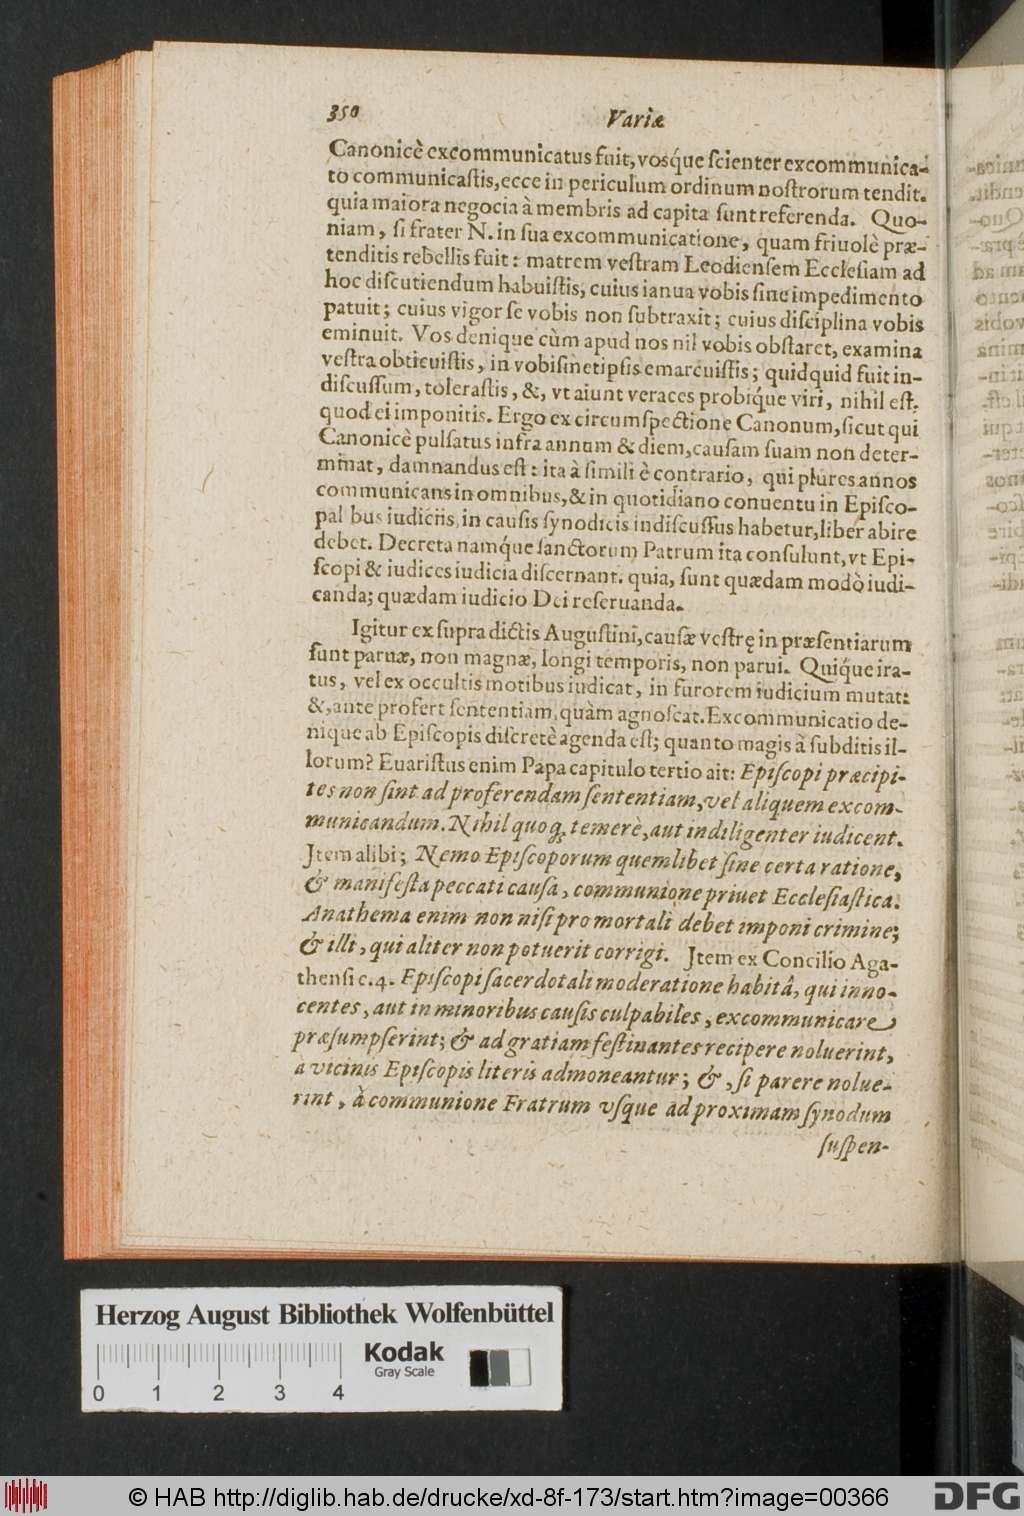 350 Variæ
Canonicè excommunicatus fuit, vosq́ue ſcienter excommunica-
to communicaſtis, ecce in periculum ordinum noſtrorum tendit.
quia maiora negocia à membris ad capita ſunt referenda. Quo-
niam, ſi frater N. in ſua excommunicatione, quam friuolè præ-
tenditis rebellis fuit: matrem veſtram Leodienſem Eccleſiam ad
hoc diſcutiendum habuiſtis, cuius ianua vobis ſine impedimento
patuit; cuius vigor ſe vobis non ſubtraxit; cuius diſciplina vobis
eminuit. Vos denique cùm apud nos nil vobis obſtaret, examina
veſtra obticuiſtis, in vobiſmetipſis emarcuiſtis; quidquid fuit in-
diſcuſſum, toleraſtis, &, vt aiunt veraces probiq́ue viri, nihil eſt.
quod ei imponitis. Ergo ex circumſpectione Canonum, ſicut qui
Canonicè pulſatus infra annum & diem, cauſam ſuam non deter-
minat, damnandus eſt: ita à ſimili è contrario, qui plures annos
communicans in omnibus, & in quotidiano conuentu in Epiſco-
palibus iudiciis, in cauſis ſynodicis indiſcuſſus habetur, liber abire
debet. Decreta namq́ue ſanctorum Patrum ita conſulunt, vt Epi-
ſcopi & iudices iudicia diſcernant. quia, ſunt quædam modò iudi-
canda; quædam iudicio Dei reſeruanda.
Igitur ex ſupra dictis Auguſtini, cauſæ veſtrę in præſentiarum
ſunt paruæ, non magnæ, longi temporis, non parui. Quiq́ue ira-
tus, vel ex occultis motibus iudicat, in furorem iudicium mutat:
&, ante profert ſententiam, quàm agnoſcat. Excommunicatio de-
nique ab Epiſcopis diſcretè agenda eſt; quanto magis à ſubditis il-
lorum? Euariſtus enim Papa capitulo tertio ait: Epiſcopi præcipi-
tes non ſint ad proferendam ſententiam, vel aliquem excom-
municandum. Nihil quoq; temerè, aut indiligenter iudicent.
Item alibi; Nemo Epiſcoporum quemlibet ſine certa ratione,
& manifeſta peccati cauſa, communione priuet Eccleſiaſtica.
Anathema enim non niſi pro mortali debet imponi crimine;
& illi, qui aliter non potuerit corrigi. Item ex Concilio Aga-
thenſi c. 4. Epiſcopi ſacerdotali moderatione habitâ, qui inno-
centes, aut in minoribus cauſis culpabiles, excommunicare
præſumpſerint; & ad gratiam feſtinantes recipere noluerint,
a vicinis Epiſcopis literis admoneantur; &, ſi parere nolue-
rint, à communione Fratrum vſque ad proximam ſynodum
ſuſpen-
Herzog August Bibliothek Wolfenbüttel
Kodak
Gray Scale
0 1 2 3 4
© HAB http://diglib.hab.de/drucke/xd-8f-173/start.htm?image=00366
DFG